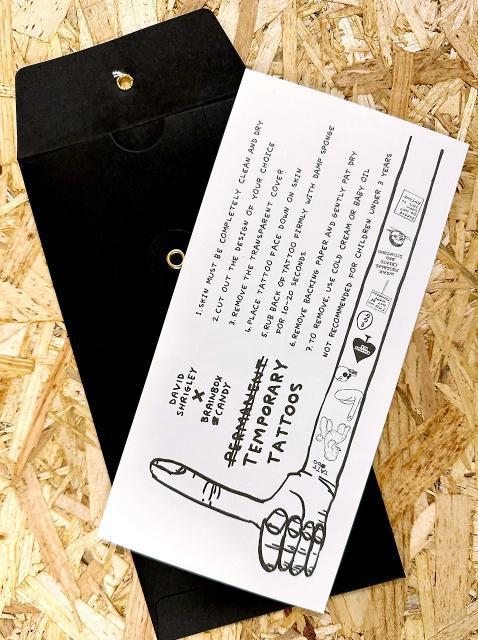 1. SKIN MUST BE COMPLETELY CLEAN AND DRY
2. CUT OUT THE DESIGN OF YOUR CHOICE
3. REMOVE THE TRANSPARENT COVER
4. PLACE TATTOO FACE DOWN ON SKIN
5. RUB BACK OF TATTOO FIRMLY WITH DAMP SPONGE
FOR 10-20 SECONDS
6. REMOVE BACKING PAPER AND GENTLY PAT DRY
7. TO REMOVE, USE COLD CREAM OR BABY OIL
NOT RECOMMENDED FOR CHILDREN UNDER 3 YEARS
DAVID
SHRIGLEY
X
BRAINBOX
CANDY
PERMANENT
TEMPORARY
TATTOOS